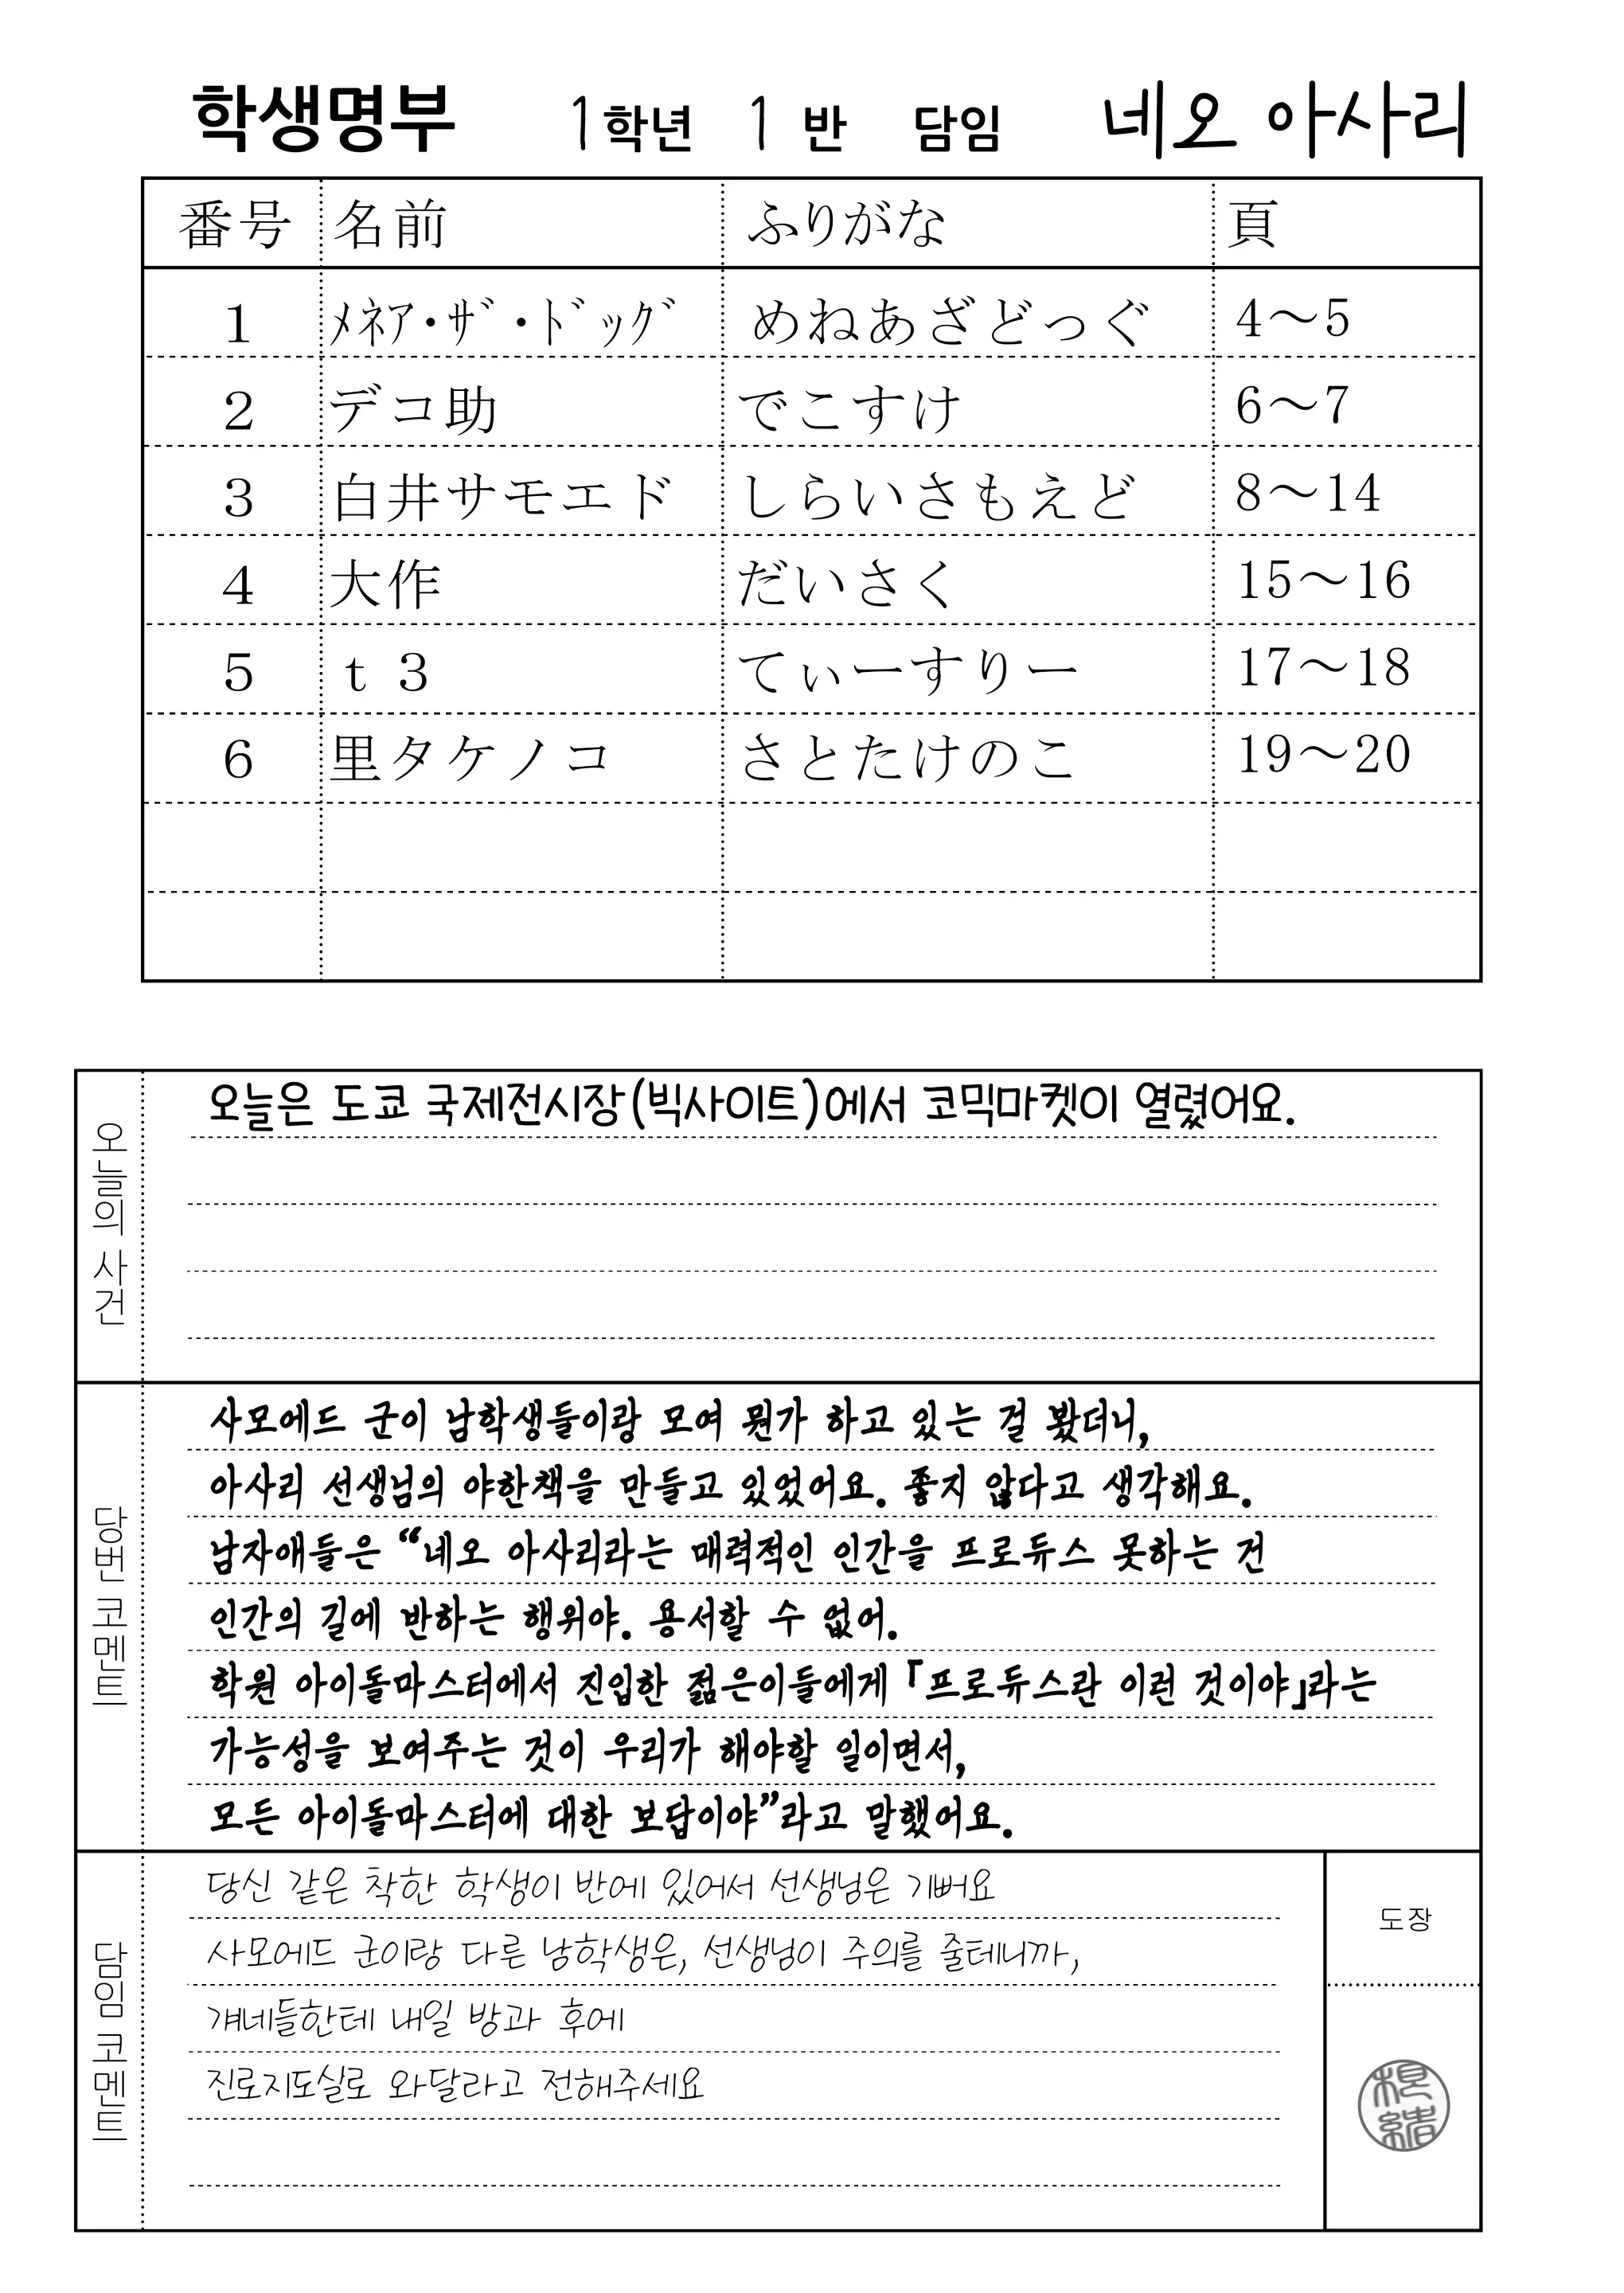 학생명부 1학년 1 반 담임 네오 아사리
番号 名前 ふりがな 頁
1 ﾒﾈｱ・ｻﾞ・ﾄﾞｯｸﾞ めねあざどっぐ 4～5
2 デコ助 でこすけ 6～7
3 白井サモエド しらいさもえど 8～14
4 大作 だいさく 15～16
5 ｔ３ てぃーすりー 17～18
6 里タケノコ さとたけのこ 19～20
오늘의 사건
오늘은 도쿄 국제전시장(빅사이트)에서 코믹마켓이 열렸어요.
당번 코멘트
사모에드 군이 남학생들이랑 모여 뭔가 하고 있는 걸 봤더니,
아사리 선생님의 야한책을 만들고 있었어요. 좋지 않다고 생각해요.
남자애들은 “네오 아사리라는 매력적인 인간을 프로듀스 못하는 건
인간의 길에 반하는 행위야. 용서할 수 없어.
학원 아이돌마스터에서 진입한 젊은이들에게 「프로듀스란 이런 것이야」라는
가능성을 보여주는 것이 우리가 해야할 일이면서,
모든 아이돌마스터에 대한 보답이야”라고 말했어요.
담임 코멘트
당신 같은 착한 학생이 반에 있어서 선생님은 기뻐요
사모에드 군이랑 다른 남학생은, 선생님이 주의를 줄테니까,
걔네들한테 내일 방과 후에
진로지도실로 와달라고 전해주세요
도장
根緒